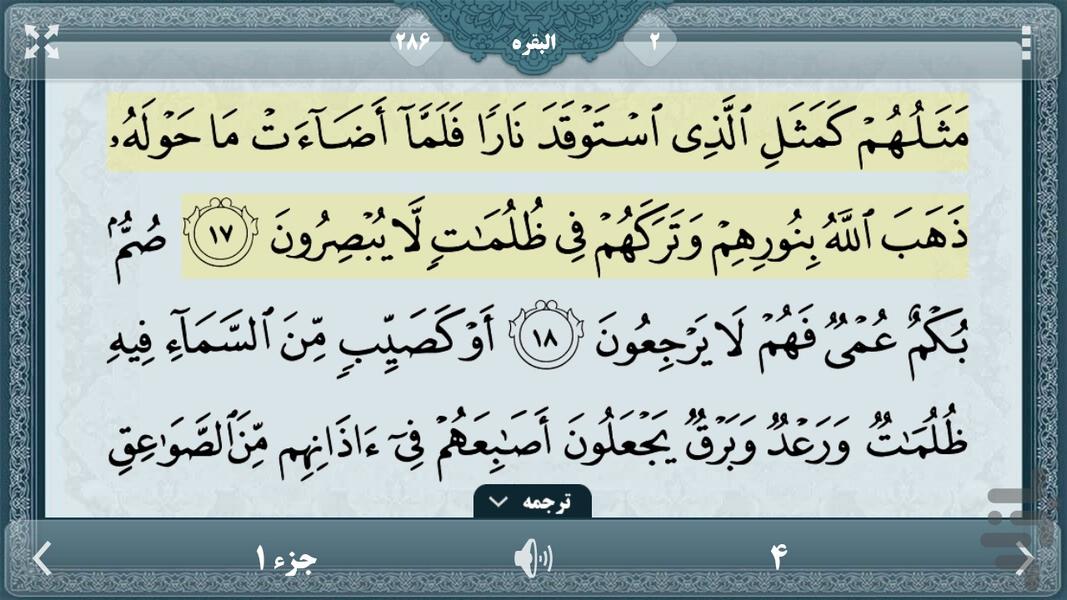 ۲ البقره ۲۸۶
مَثَلُهُمْ كَمَثَلِ ٱلَّذِى ٱسْتَوْقَدَ نَارًا فَلَمَّآ أَضَآءَتْ مَا حَوْلَهُۥ
ذَهَبَ ٱللَّهُ بِنُورِهِمْ وَتَرَكَهُمْ فِى ظُلُمَـٰتٍ لَّا يُبْصِرُونَ ١٧ صُمٌّۢ
بُكْمٌ عُمْىٌ فَهُمْ لَا يَرْجِعُونَ ١٨ أَوْ كَصَيِّبٍ مِّنَ ٱلسَّمَآءِ فِيهِ
ظُلُمَـٰتٌ وَرَعْدٌ وَبَرْقٌ يَجْعَلُونَ أَصَـٰبِعَهُمْ فِىٓ ءَاذَانِهِم مِّنَ ٱلصَّوَٰعِقِ
ترجمه
۴ جزء ۱